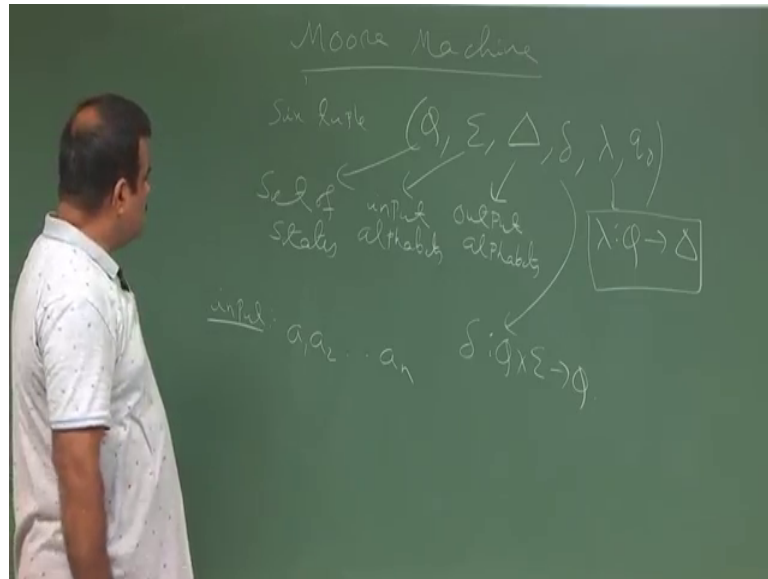 Moore Machine
Six tuple (Q, Σ, Δ, δ, λ, q₀)
Set of states
input alphabets
output alphabets
λ: Q → Δ
input: a₁a₂ .. aₙ
δ: Q x Σ → Q